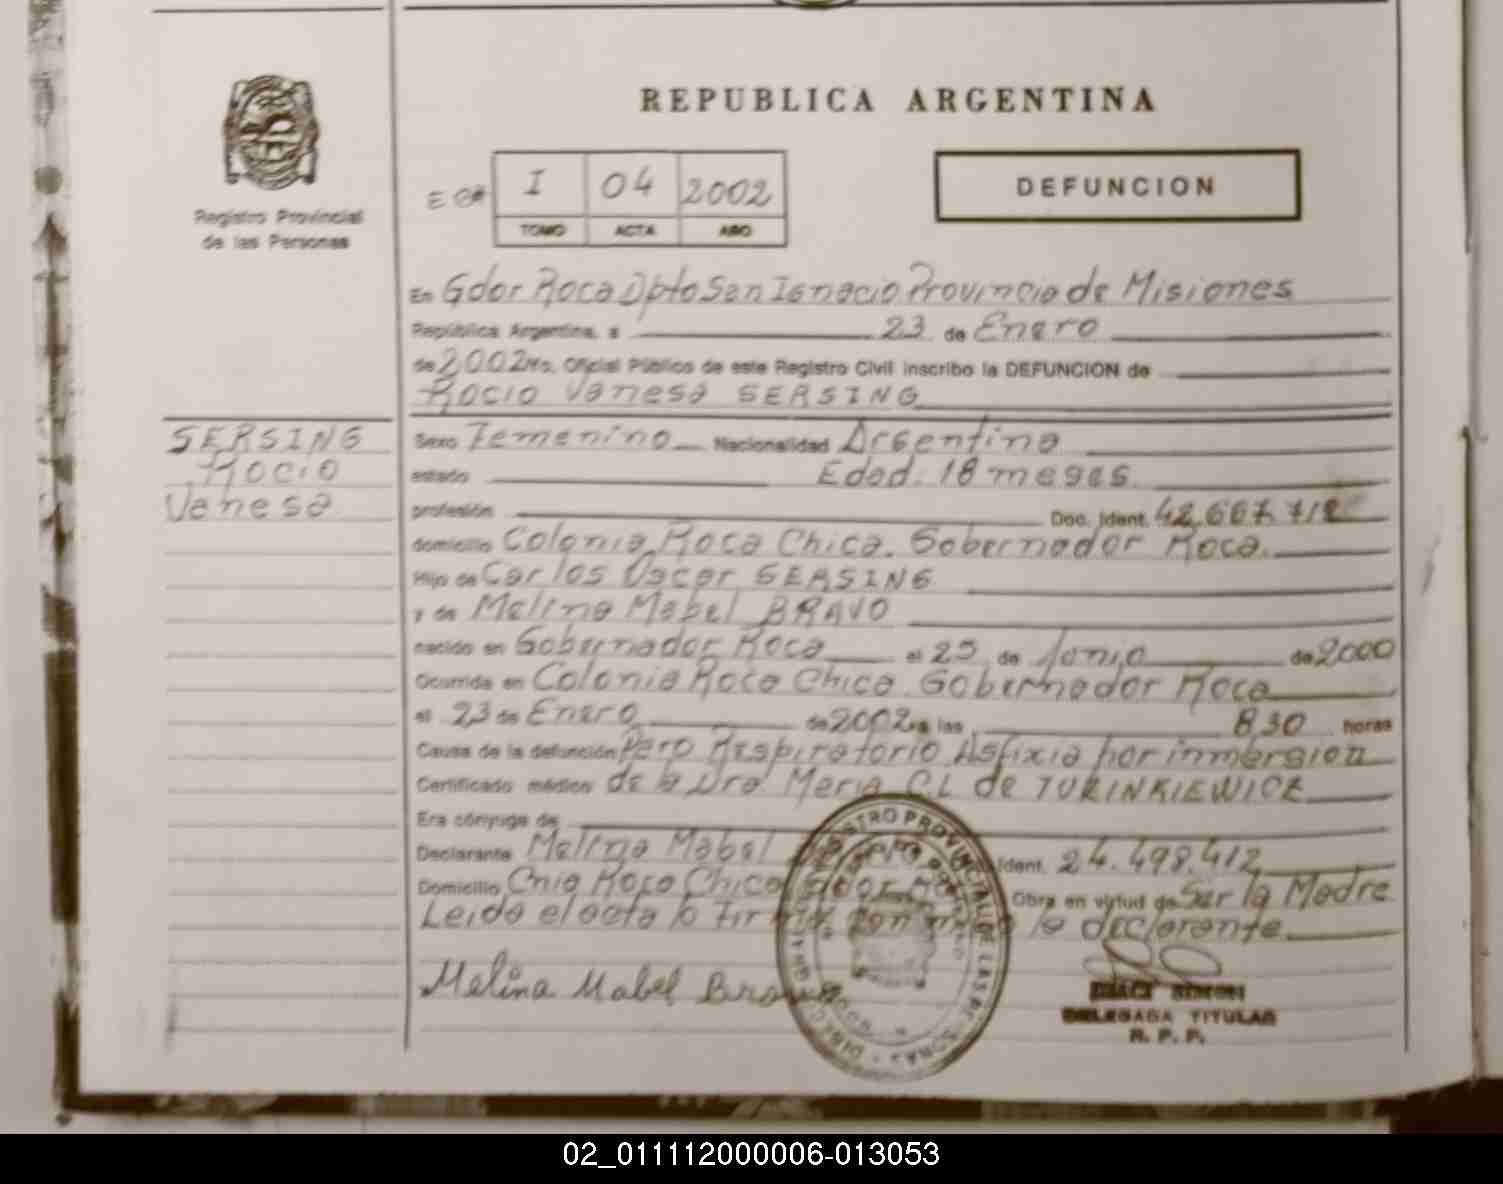 REPUBLICA ARGENTINA
Registro Provincial
de las Personas
I 04 2002
TOMO ACTA AÑO
DEFUNCION
En Gdor Roca Dpto San Ignacio Provincia de Misiones
República Argentina, a 23 de Enero
de 2002 Yo, Oficial Público de este Registro Civil inscribo la DEFUNCION de
Rocio Vanesa SERSING
SERSING
Rocio
Vanesa
Sexo Femenino Nacionalidad Argentina
estado Edad: 18 meses.
profesión Doc. Ident. 42.667.712
domicilio Colonia Roca Chica. Gobernador Roca.
Hijo de Carlos Oscar SERSING
y de Melina Mabel BRAVO
nacido en Gobernador Roca el 25 de Junio de 2000
Ocurrida en Colonia Roca Chica. Gobernador Roca
el 23 de Enero de 2002 a las 830 horas
Causa de la defunción Paro Respiratorio Asfixia por inmersion
Certificado médico de la Dra Maria CL de TURINKIEWICZ
Era cónyuge de
Declarante Melina Mabel Ident. 24.498.412
Domicilio Cnia Roca Chica Gdor Obra en virtud de Ser la Madre
Leida el acta la firma con la declarante
Melina Mabel Bravo
REGISTRO PROVINCIAL DE LAS PERSONAS
DELEGADA TITULAR
R. P. P.
02_011112000006-013053